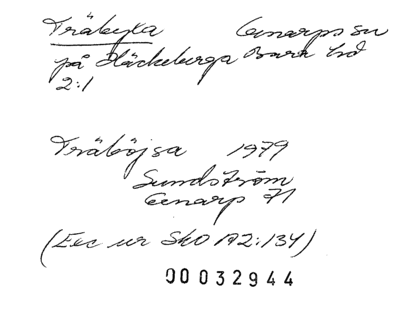 Träbyxa Genarps sn
på Häckeberga Bara hd
2:1
Träböjsa 1979
Sundström
Genarp 71
(Exc ur SkO A2:134)
00032944